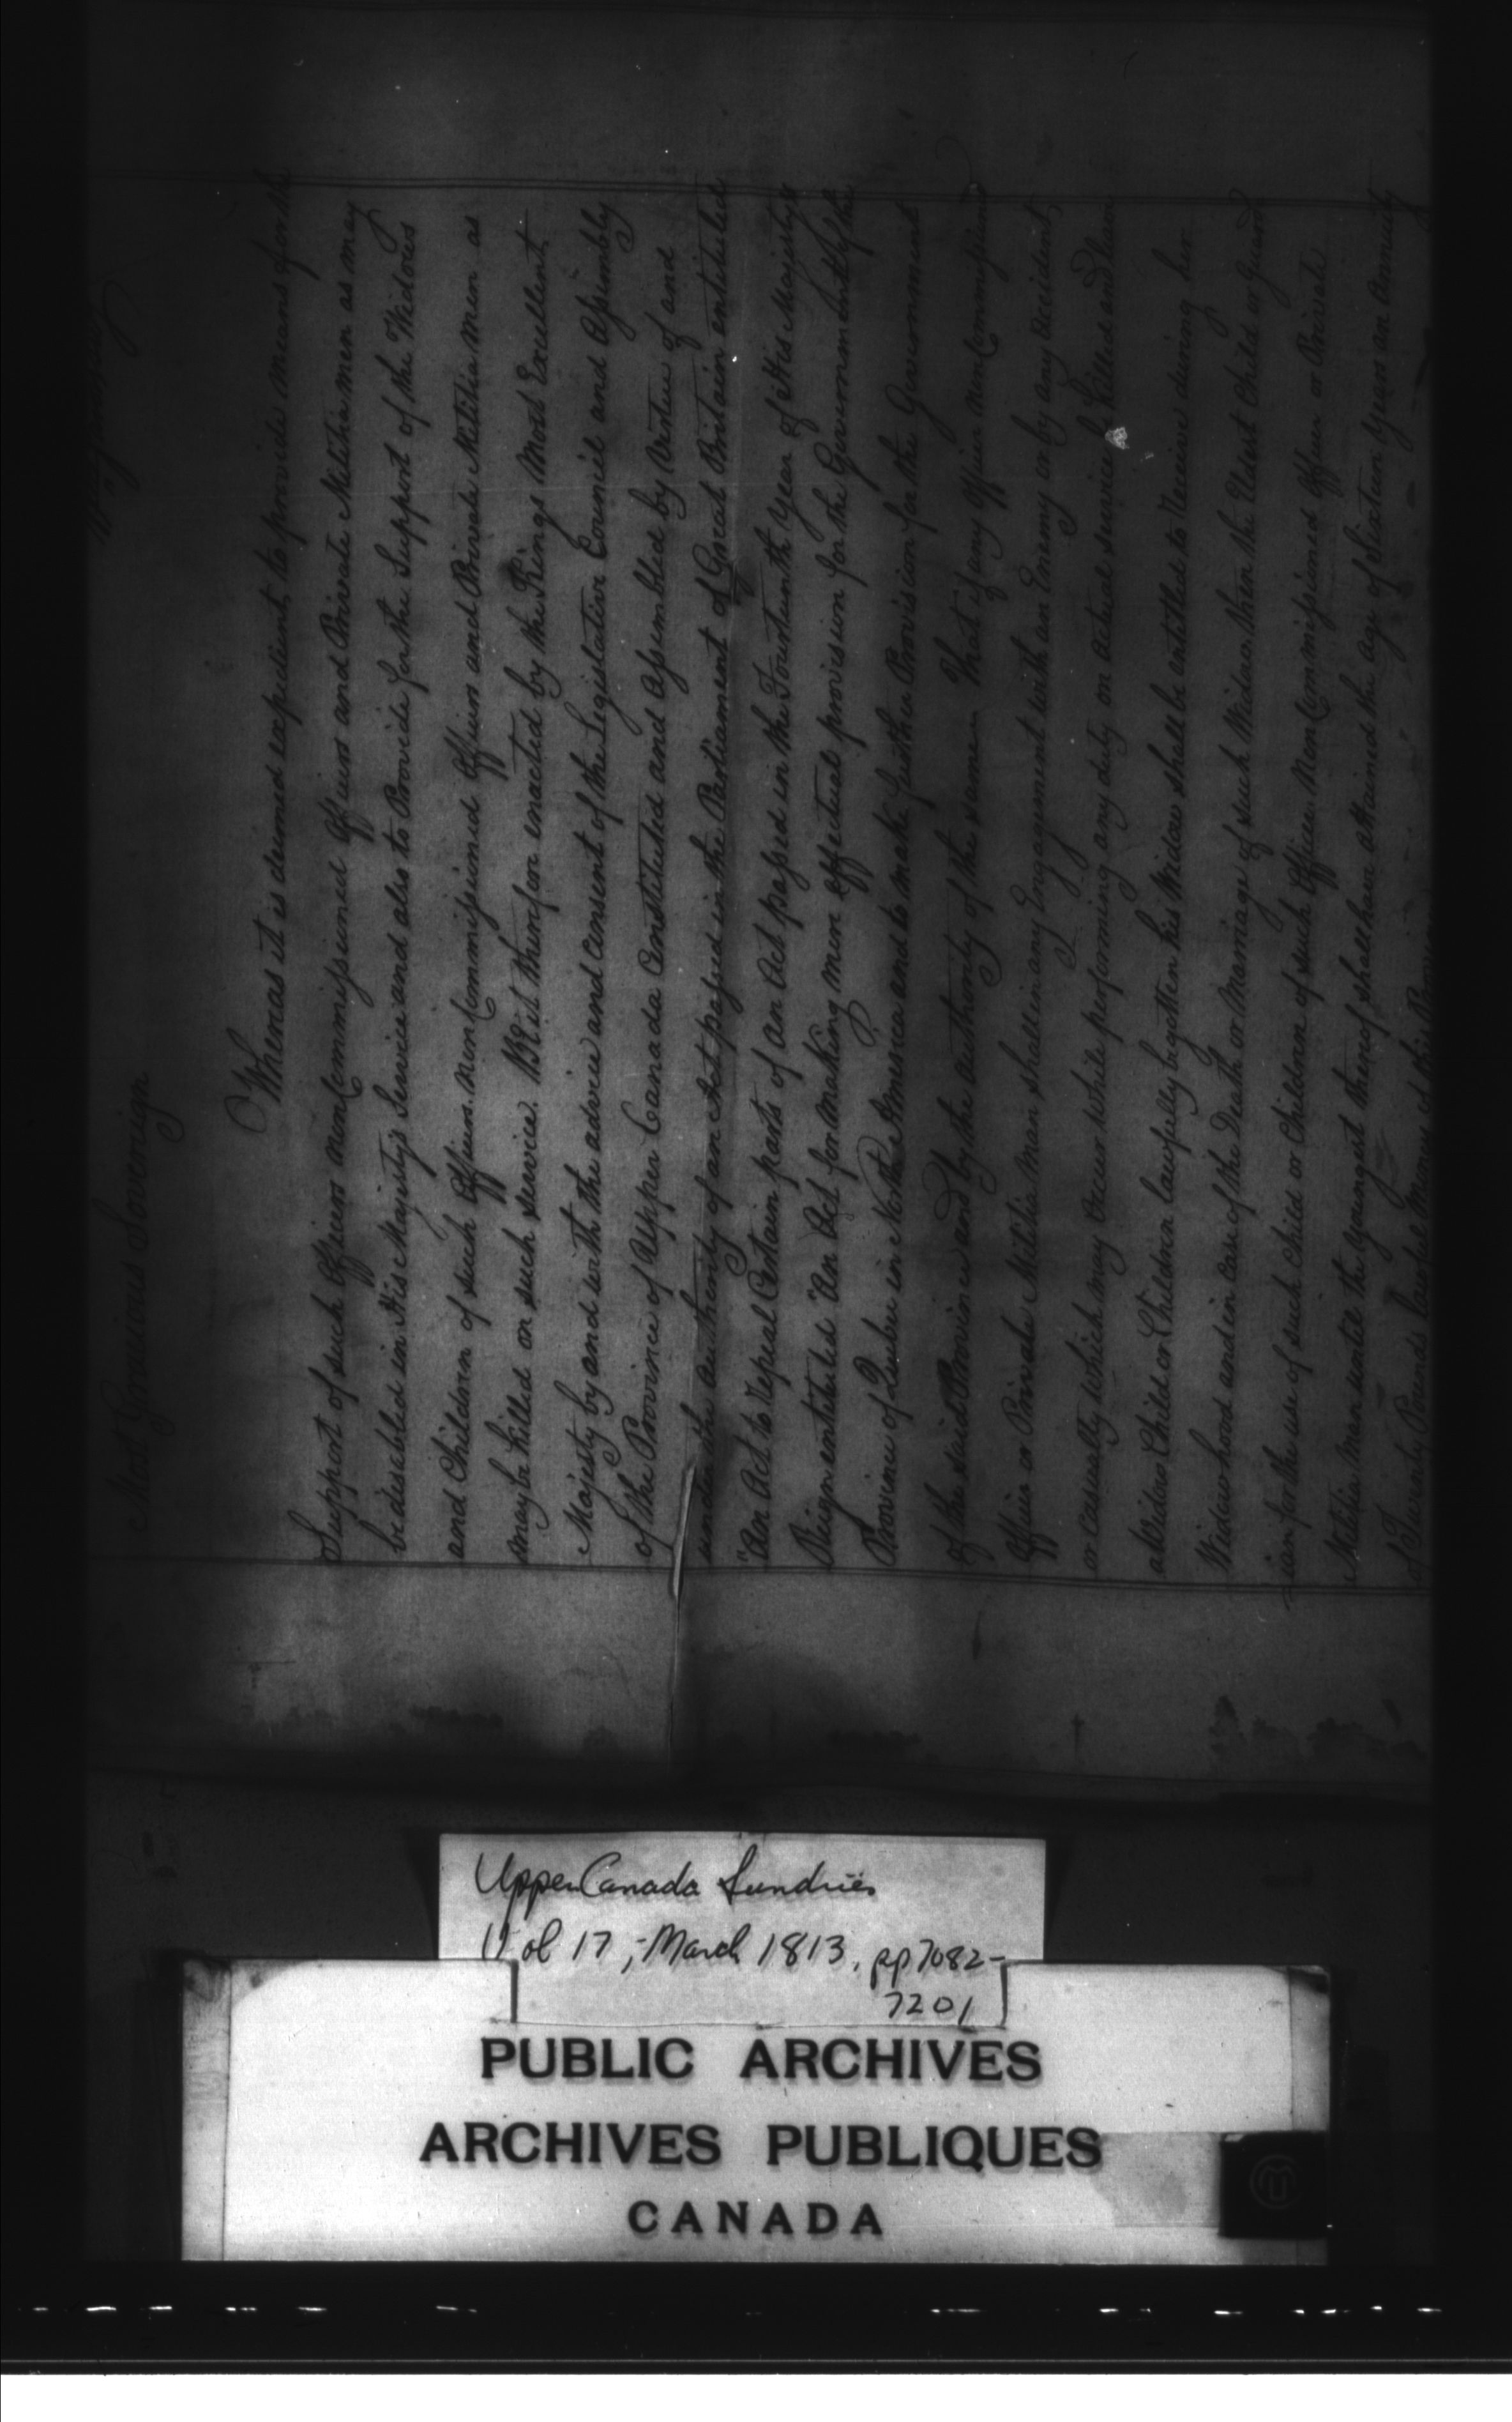 Most Gracious Sovereign
Whereas it is deemed expedient to provide Means for the
Support of such Officers non Commissioned Officers and Private Militia men as may
be disabled in His Majesty's Service and also to Provide for the Support of the Widows
and Children of such Officers. Non Commissioned Officers and Private Militia Men as
may be killed on such service. BE it therefore enacted by the Kings Most Excellent
Majesty by and with the advice and consent of the Legislative Council and Assembly
of the Province of Upper Canada Constituted and Assembled by Virtue of and
under the authority of an Act passed in the Parliament of Great Britain entituled
"An Act to repeal Certain parts of An Act passed in the Fourteenth Year of His Majestys
Reign entituled "An Act for making more effectual provision for the Government of the
Province of Quebec in North America and to make further Provision for the Government
of the said Province and by the authority of the same That if any Officer Non Commissioned
Officer or Private Militia Man shall in any Engagement with an Enemy or by any accident
or casualty which may Occur while performing any duty on actual service be killed and leave
a Widow Child or Children lawfully begotten his Widow shall be entitled to receive during her
Widowhood and in case of the Death or Marriage of such Widow then the Eldest Child or Guard
ian for the use of such Child or Children of such Officer Non Commissioned Officer or Private
Militia Man until the youngest thereof shall have attained the age of Sixteen Years an Annuity
of Twenty Pounds lawful Money of this
Upper Canada Sundries
Vol 17, - March 1813, pp 7082-
7201
PUBLIC ARCHIVES
ARCHIVES PUBLIQUES
CANADA